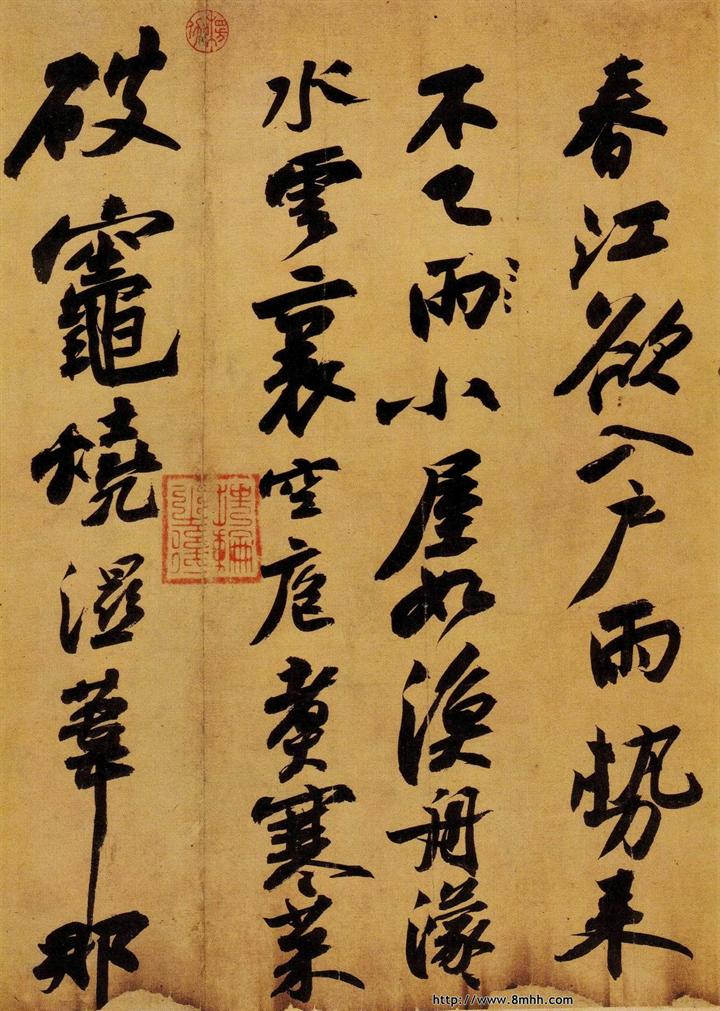 春江欲入户雨勢来
不已雨小屋如漁舟濛〻
水雲裏空庖煑寒菜
破竈燒濕葦那
http://www.8mhh.com